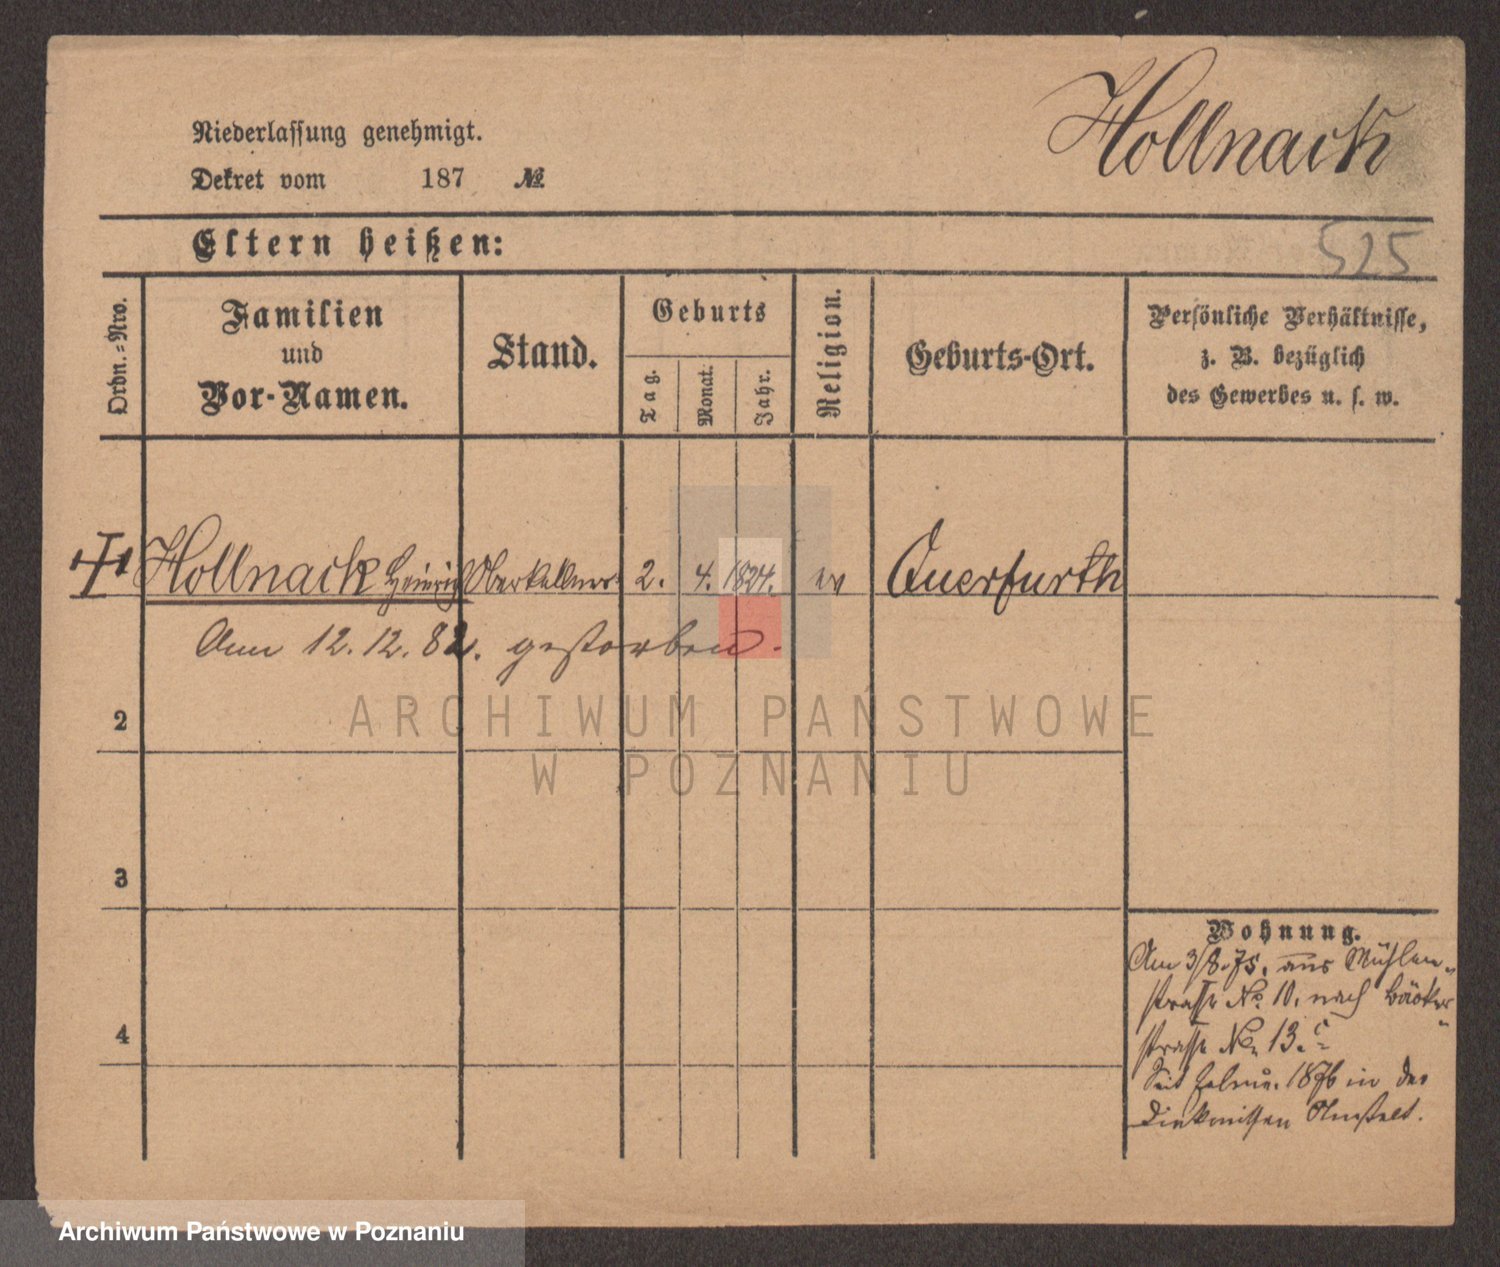 Hollnack
Niederlassung genehmigt.
Dekret vom 187 №
Eltern heißen:
525
Ordn.-Nro.
Familien
und
Vor-Namen.
Stand.
Geburts
Tag.
Monat.
Jahr.
Religion.
Geburts-Ort.
Persönliche Verhältnisse,
z. B. bezüglich
des Gewerbes u. s. w.
1 Hollnack Heinrich Oberkellner 2. 4. 1824. ev Querfurth
Am 12.12.82. gestorben.
ARCHIWUM PAŃSTWOWE
W POZNANIU
2
3
4
Wohnung.
Am 3/8.75. aus Mühlen-
straße No. 10. nach Bäcker-
straße No 13.c
Seit Februr. 1876 in der
Anstalt.
Archiwum Państwowe w Poznaniu